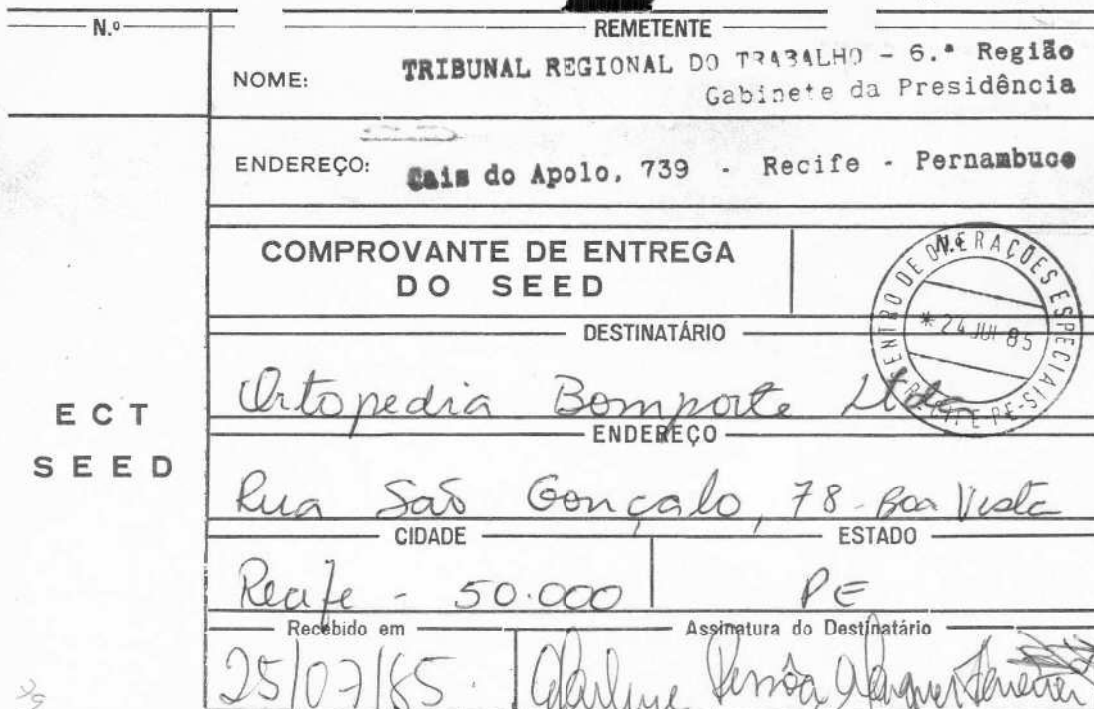 N.º
REMETENTE
NOME: TRIBUNAL REGIONAL DO TRABALHO - 6.ª Região
Gabinete da Presidência
ENDEREÇO: Cais do Apolo, 739 - Recife - Pernambuco
COMPROVANTE DE ENTREGA
DO SEED
N.º
CENTRO DE OPERAÇÕES ESPECIAIS
* 24 JUL 85
RECIFE-PE
DESTINATÁRIO
Ortopedia Bomporte Ltda
ECT
SEED
ENDEREÇO
Rua São Gonçalo, 78 - Boa Vista
CIDADE
ESTADO
Recife - 50.000
PE
Recebido em
Assinatura do Destinatário
25/07/85